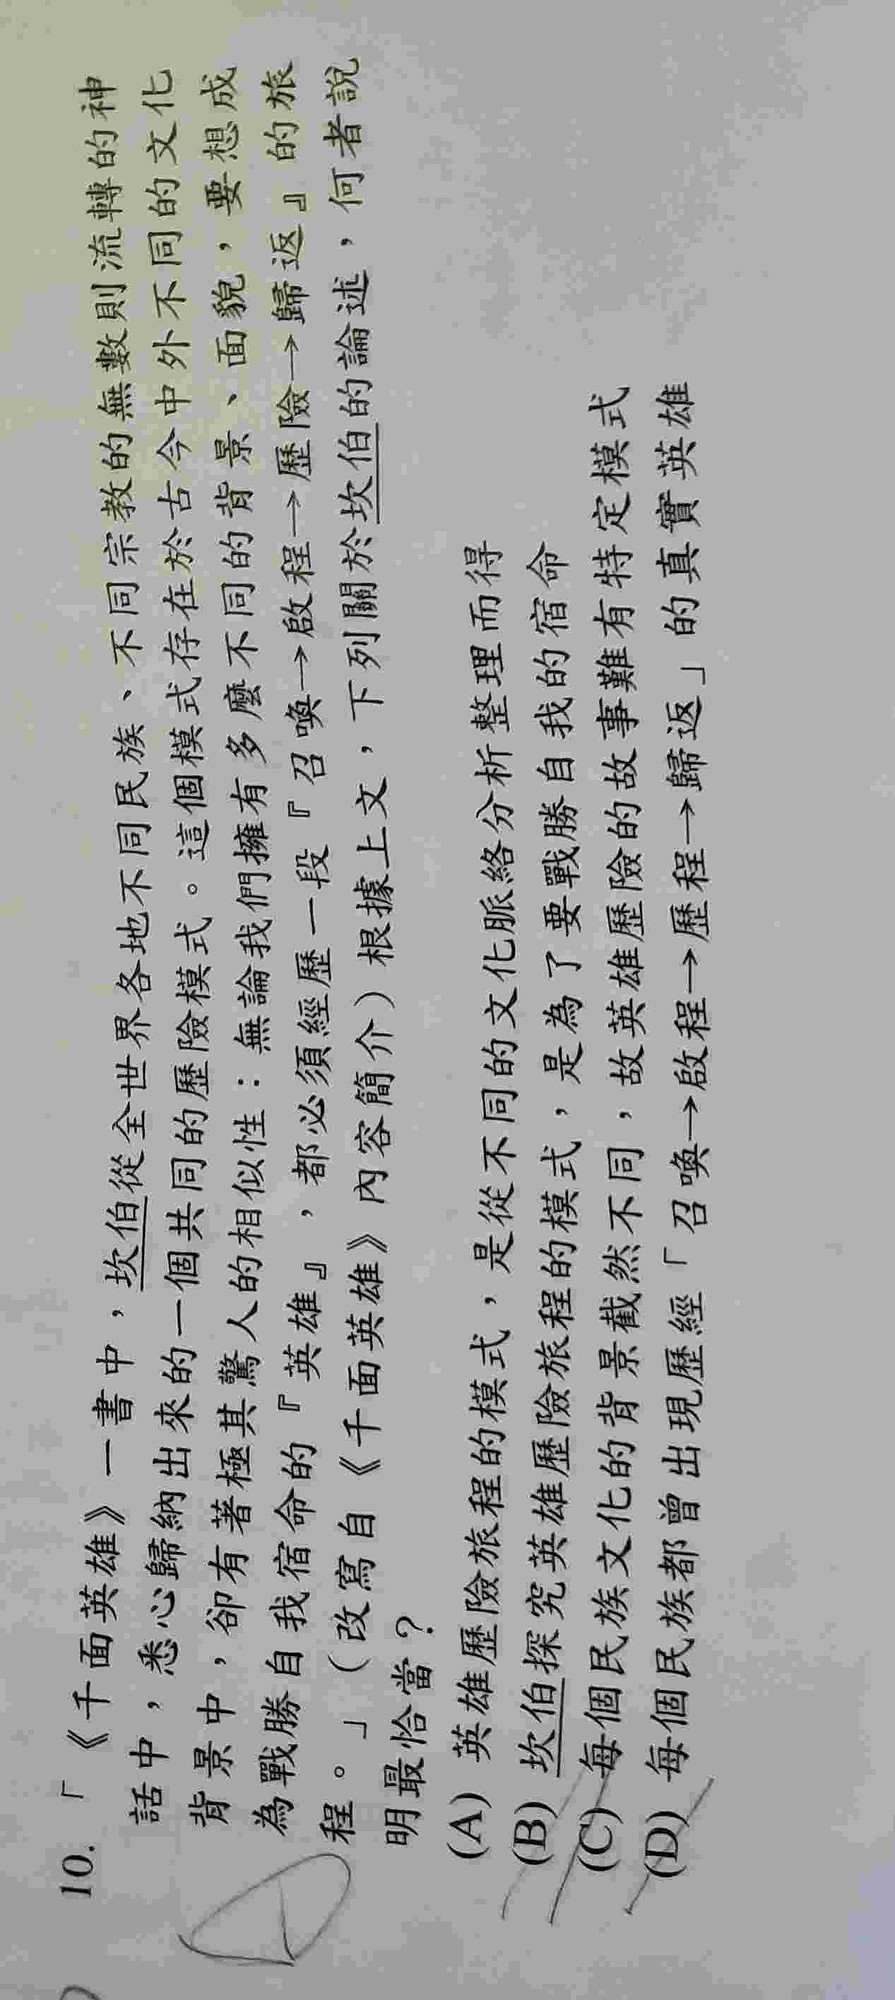 10.「《千面英雄》一書中，坎伯從全世界各地不同民族、不同宗教的無數則流轉的神
話中，悉心歸納出來的一個共同的歷險模式。這個模式存在於古今中外不同的文化
背景中，卻有著極其驚人的相似性：無論我們擁有多麼不同的背景、面貌，要想成
為戰勝自我宿命的『英雄』，都必須經歷一段『召喚→啟程→歷險→歸返』的旅
程。」（改寫自《千面英雄》內容簡介）根據上文，下列關於坎伯的論述，何者說
明最恰當？
(A) 英雄歷險旅程的模式，是從不同的文化脈絡分析整理而得
(B) 坎伯探究英雄歷險旅程的模式，是為了要戰勝自我的宿命
(C) 每個民族文化的背景截然不同，故英雄歷險的故事難有特定模式
(D) 每個民族都曾出現歷經「召喚→啟程→歷程→歸返」的真實英雄